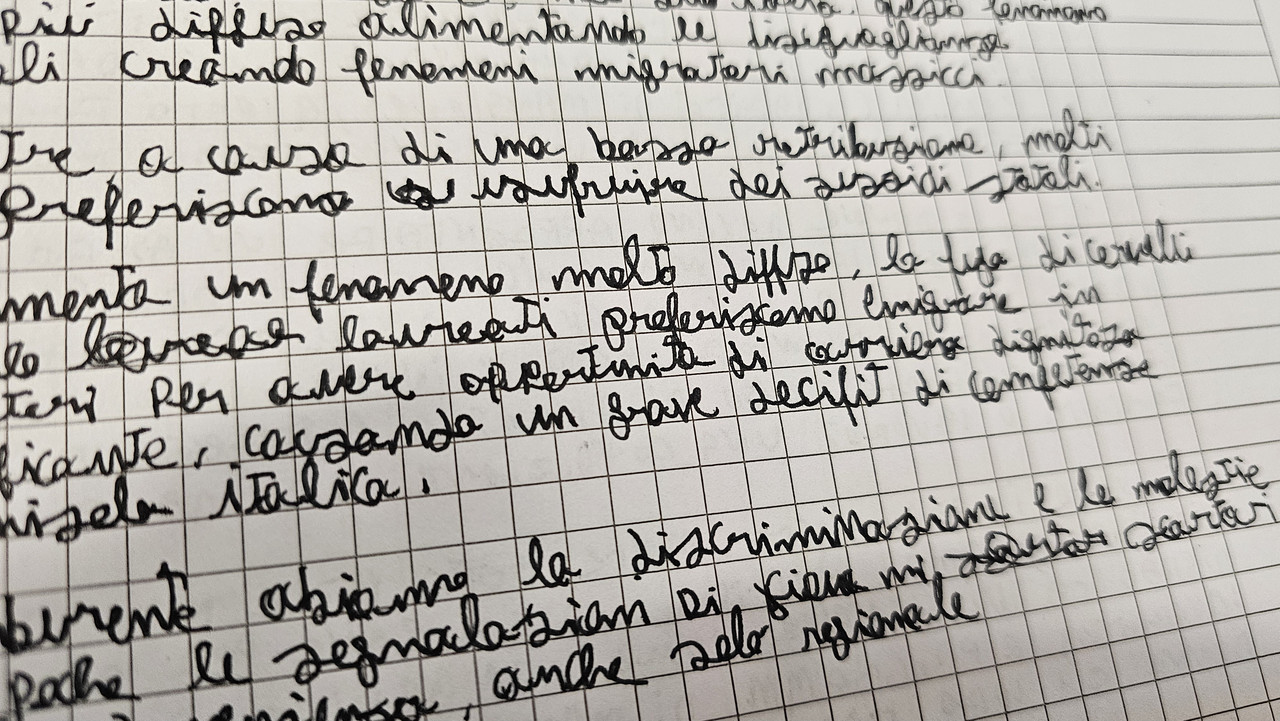 questo fenomeno
più diffuso alimentando le disuguaglianze
ali creando fenomeni migratori massicci.
tre, a causa di una bassa retribuzione, molti
preferiscono usufruire dei sussidi statali.
menta un fenomeno molto diffuso, la fuga di cervelli
lo laureati preferiscono emigrare in
teri per avere opportunità di carriera dignitosa
ficante, causando un grave decifit di competenze
nisola italica.
burente abiamo la discriminazione e le molestie
poche le segnalazion di scartori
anche solo regionale